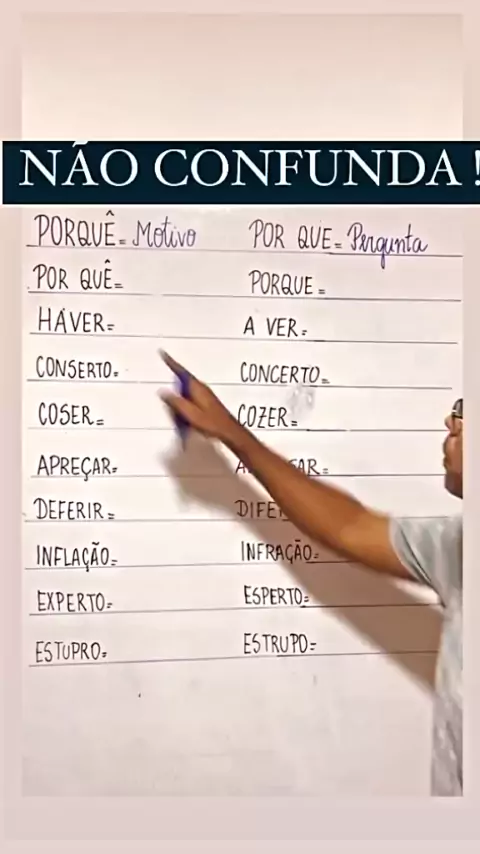 NÃO CONFUNDA!
PORQUÊ= Motivo POR QUE= Pergunta
POR QUÊ= PORQUE=
HÁVER= A VER=
CONSERTO= CONCERTO=
COSER= COZER=
APREÇAR=
DEFERIR=
INFLAÇÃO= INFRAÇÃO=
EXPERTO= ESPERTO=
ESTUPRO= ESTRUPO=